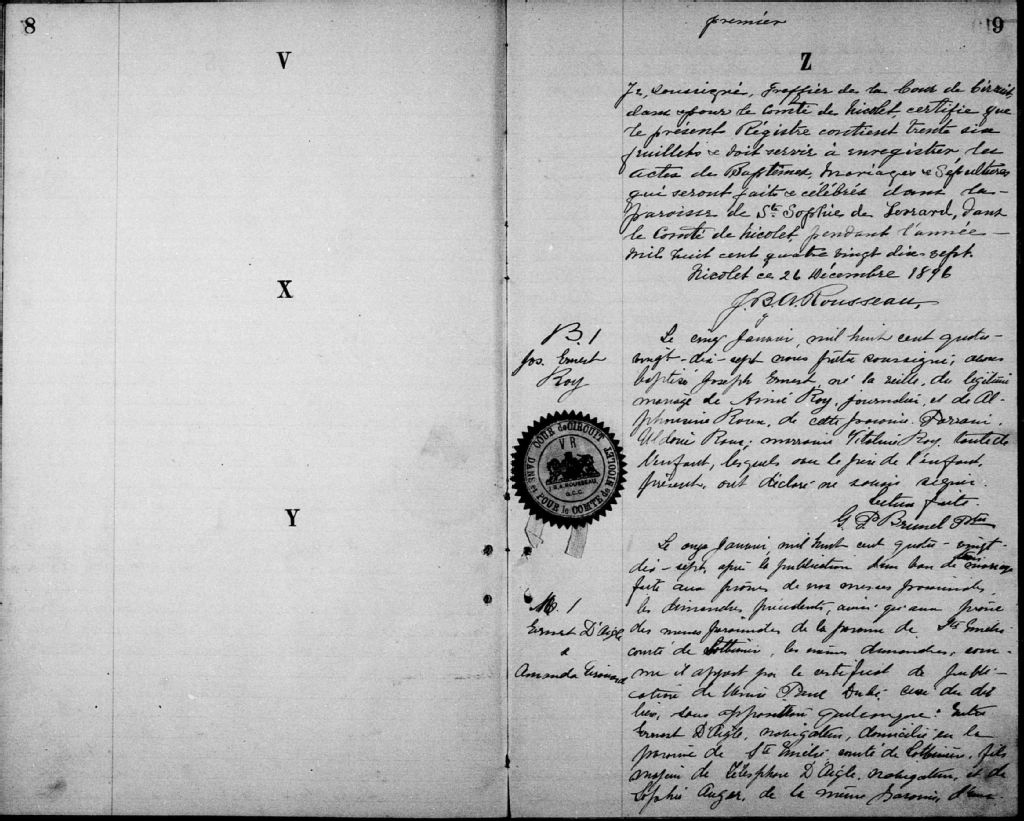 8
V
X
Y
premier
9
Z
Je, soussigné, Greffier de la Cour de Circuit
dans & pour le Comté de Nicolet, certifie que
le présent Régistre contient trente six
feuillets & doit servir à enregistrer les
actes de Baptêmes, Mariages & Sépultures
qui seront faits & célébrés dans la
paroisse de Ste Sophie de Levrard, dans
le Comté de Nicolet, pendant l'année
mil huit cent quatre vingt dix sept.
Nicolet ce 26 Décembre 1896
J. B. A. Rousseau,
B. 1
Jos. Ernest
Roy
Le cinq Janvier, mil huit cent quatre-
vingt-dix-sept nous prêtre soussigné, avons
baptisé Joseph Ernest, né la veille, du légitime
mariage de Aimé Roy, journalier, et de Al-
phonsine Roux, de cette paroisse. Parrain
Roux; marraine Roy,
l'enfant, lesquels le père de l'enfant,
présent, ont déclaré ne savoir signer.
Lecture faite.
G. P. Brunel Ptre
COUR de CIRCUIT
DANS et POUR le COMTÉ de NICOLET
VR
J.B.A. ROUSSEAU,
G.C.C.
M. 1
Ernest D'Aigle
&
Amanda Girouard
Le onze Janvier, mil huit cent quatre-vingt-
dix-sept, après la publication d'un ban de mariage
faite aux prônes de nos messes paroissiales
les dimanches précédents, ainsi qu'aux prône
des messes paroissiales de la paroisse de Ste Emélie
comté de Lotbinière, les mêmes dimanches, com-
me il appert par le certificat de publi-
cation de Messire Paul Dubé curé du dit
lieu, sans opposition quelconque: Entre
Ernest D'Aigle, navigateur, domicilié en la
paroisse de Ste Emélie comté de Lotbinière, fils
majeur de Télesphore D'Aigle, navigateur, et de
Sophie Auger, de la même paroisse, d'une